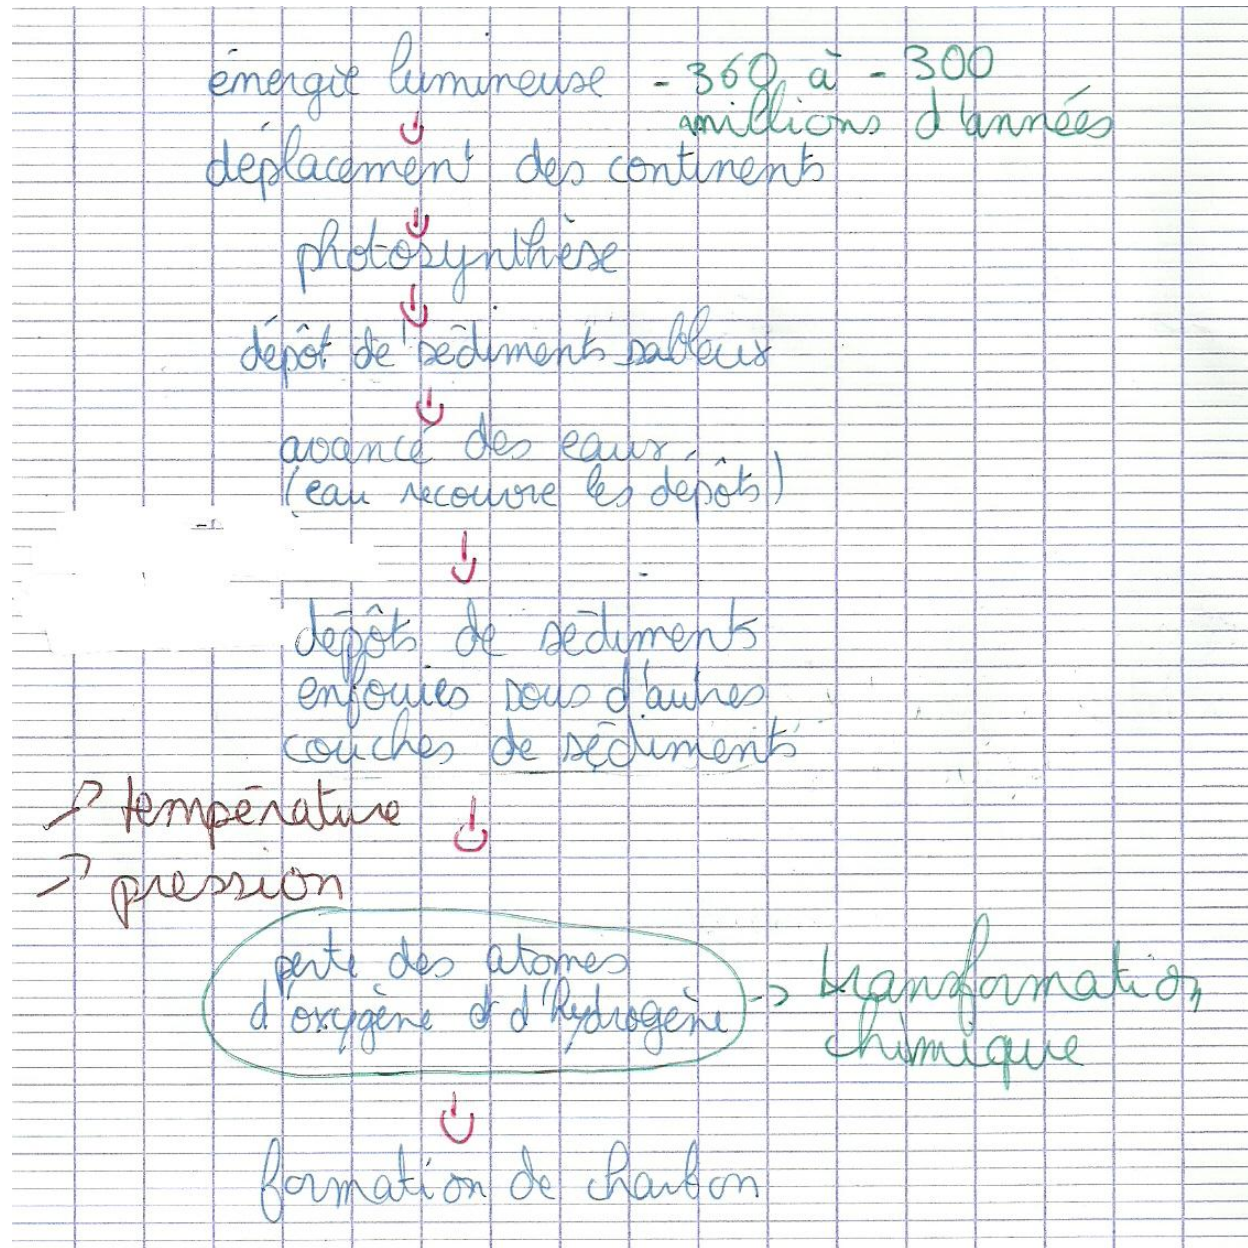 énergie lumineuse - 360 à - 300
millions d'années
déplacement des continents
photosynthèse
dépôt de sédiments sableux
avancé des eaux
(eau recouvre les dépôts)
dépôts de sédiments
enfouies sous d'autres
couches de sédiments
↗ température
↗ pression
perte des atomes
d'oxygène et d'hydrogène -> transformation
chimique
formation de charbon